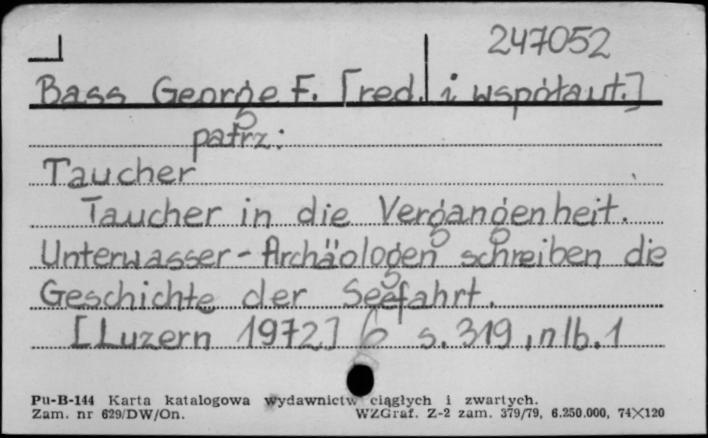 247052
Bass George F. [red. i współaut.]
patrz:
Taucher
Taucher in die Vergangenheit.
Unterwasser-Archäologen schreiben die
Geschichte der Seefahrt.
[Luzern 1972] s. 319, nlb. 1
Pu-B-144 Karta katalogowa wydawnictw ciągłych i zwartych.
Zam. nr 629/DW/On. WZGraf. Z-2 zam. 379/79, 6.250.000, 74×120